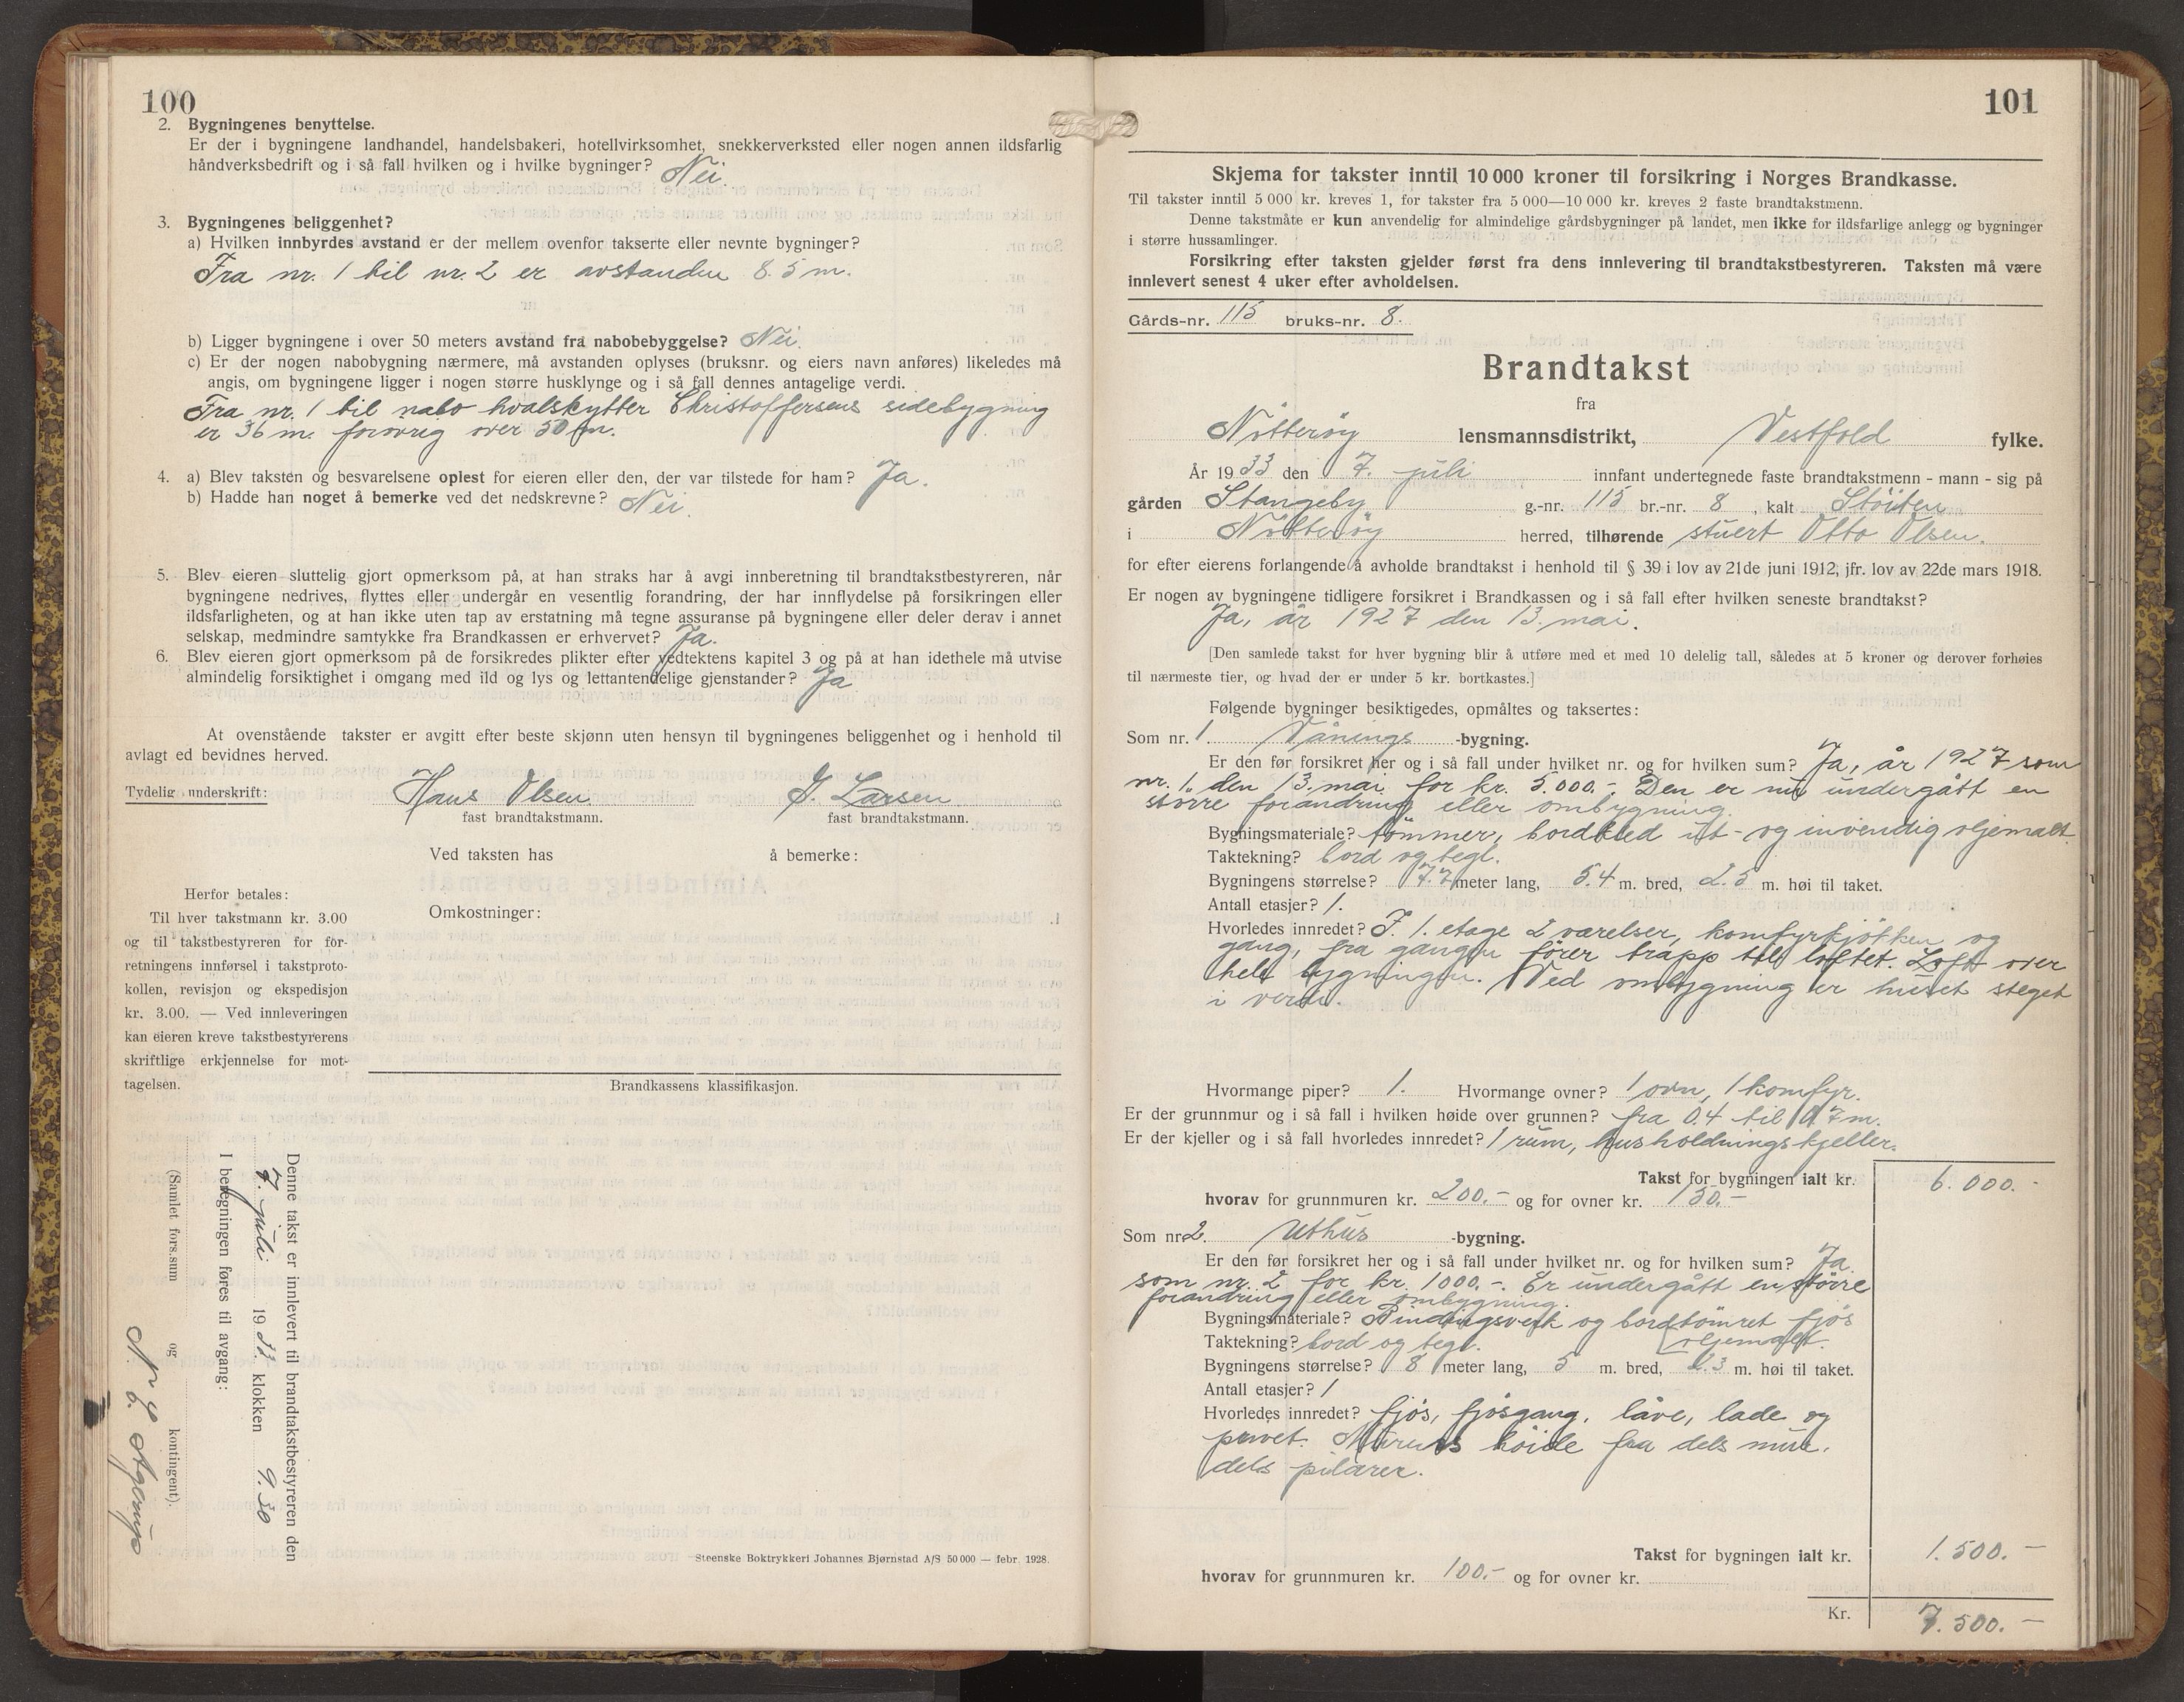 100
2. Bygningenes benyttelse.
Er der i bygningene landhandel, handelsbakeri, hotellvirksomhet, snekkerverksted eller nogen annen ildsfarlig
håndverksbedrift og i så fall hvilken og i hvilke bygninger? Nei.
3. Bygningenes beliggenhet?
a) Hvilken innbyrdes avstand er der mellem ovenfor takserte eller nevnte bygninger?
Fra nr. 1 til nr. 2 er avstanden 8.5 m.
b) Ligger bygningene i over 50 meters avstand fra nabobebyggelse? Nei.
c) Er der nogen nabobygning nærmere, må avstanden oplyses (bruksnr. og eiers navn anføres) likeledes må
angis, om bygningene ligger i nogen større husklynge og i så fall dennes antagelige verdi.
Fra nr. 1 til nabo hvalskytter Christoffersens sidebygning
er 36 m. forøvrig over 50 m.
4. a) Blev taksten og besvarelsene oplest for eieren eller den, der var tilstede for ham? Ja.
b) Hadde han noget å bemerke ved det nedskrevne? Nei.
5. Blev eieren sluttelig gjort opmerksom på, at han straks har å avgi innberetning til brandtakstbestyreren, når
bygningene nedrives, flyttes eller undergår en vesentlig forandring, der har innflydelse på forsikringen eller
ildsfarligheten, og at han ikke uten tap av erstatning må tegne assuranse på bygningene eller deler derav i annet
selskap, medmindre samtykke fra Brandkassen er erhvervet? Ja.
6. Blev eieren gjort opmerksom på de forsikredes plikter efter vedtektens kapitel 3 og på at han idethele må utvise
almindelig forsiktighet i omgang med ild og lys og lettantendelige gjenstander? Ja
At ovenstående takster er avgitt efter beste skjønn uten hensyn til bygningenes beliggenhet og i henhold til
avlagt ed bevidnes herved.
Tydelig underskrift: Hans Olsen J. Larsen
fast brandtakstmann. fast brandtakstmann.
Ved taksten has å bemerke:
Omkostninger:
Herfor betales:
Til hver takstmann kr. 3.00
og til takstbestyreren for for-
retningens innførsel i takstproto-
kollen, revisjon og ekspedisjon
kr. 3.00. — Ved innleveringen
kan eieren kreve takstbestyrerens
skriftlige erkjennelse for mot-
tagelsen.
Brandkassens klassifikasjon.
Denne takst er innlevert til brandtakstbestyreren den
7. juli 1933. klokken 9.30
I beregningen føres til avgang:
(Samlet fors.sum og kontingent).
Steenske Boktrykkeri Johannes Bjørnstad A/S 50 000 — febr. 1928.
101
Skjema for takster inntil 10 000 kroner til forsikring i Norges Brandkasse.
Til takster inntil 5 000 kr. kreves 1, for takster fra 5 000—10 000 kr. kreves 2 faste brandtakstmenn.
Denne takstmåte er kun anvendelig for almindelige gårdsbygninger på landet, men ikke for ildsfarlige anlegg og bygninger
i større hussamlinger.
Forsikring efter taksten gjelder først fra dens innlevering til brandtakstbestyreren. Taksten må være
innlevert senest 4 uker efter avholdelsen.
Gårds-nr. 115 bruks-nr. 8.
Brandtakst
fra
Nötteröy lensmannsdistrikt, Vestfold fylke.
År 1933 den 7. juli innfant undertegnede faste brandtakstmenn - mann - sig på
gården Stangeby g.-nr. 115 br.-nr. 8, kalt Stöiten
i Nötteröy herred, tilhørende stuert Otto Olsen.
for efter eierens forlangende å avholde brandtakst i henhold til § 39 i lov av 21de juni 1912, jfr. lov av 22de mars 1918.
Er nogen av bygningene tidligere forsikret i Brandkassen og i så fall efter hvilken seneste brandtakst?
Ja, år 1927 den 13. mai.
[Den samlede takst for hver bygning blir å utføre med et med 10 delelig tall, således at 5 kroner og derover forhøies
til nærmeste tier, og hvad der er under 5 kr. bortkastes.]
Følgende bygninger besiktigedes, opmåltes og taksertes:
Som nr. 1. Vånings -bygning.
Er den før forsikret her og i så fall under hvilket nr. og for hvilken sum? Ja, år 1927 som
nr. 1. den 13. mai for kr. 5.000.-. Den er nu undergått en
större forandring eller ombygning.
Bygningsmateriale? tömmer, bordkled ut- og invendig oljemalt.
Taktekning? bord og tegl.
Bygningens størrelse? 7.7 meter lang, 5.4 m. bred, 2.5 m. høi til taket.
Antall etasjer? 1.
Hvorledes innredet? I 1. etage 2 værelser, komfyrkjökken og
gang, fra gangen förer trapp til loftet. Loft over
hele bygningen. Ved ombygning er huset steget
i verdi.
Hvormange piper? 1. Hvormange ovner? 1 ovn, 1 komfyr.
Er der grunnmur og i så fall i hvilken høide over grunnen? fra 0.4 til 0.7 m.
Er der kjeller og i så fall hvorledes innredet? 1 rum, husholdningskjeller.
Takst for bygningen ialt kr. 6.000.-
hvorav for grunnmuren kr. 200.- og for ovner kr. 150.-
Som nr. 2. Uthus -bygning.
Er den før forsikret her og i så fall under hvilket nr. og for hvilken sum? Ja.
som nr. 2 for kr. 1000.-. Er undergått en större
forandring eller ombygning.
Bygningsmateriale? Bindingsverk og bordtömret fjös
Taktekning? bord og tegl. oljemalt.
Bygningens størrelse? 8 meter lang, 5 m. bred, 2.3 m. høi til taket.
Antall etasjer? 1
Hvorledes innredet? fjös, fjösgang, låve, lade og
privet. Murens höide fra dels mur,
dels pilarer.
Takst for bygningen ialt kr. 1.500.-
hvorav for grunnmuren kr. 100.- og for ovner kr.
Kr. 7.500.-